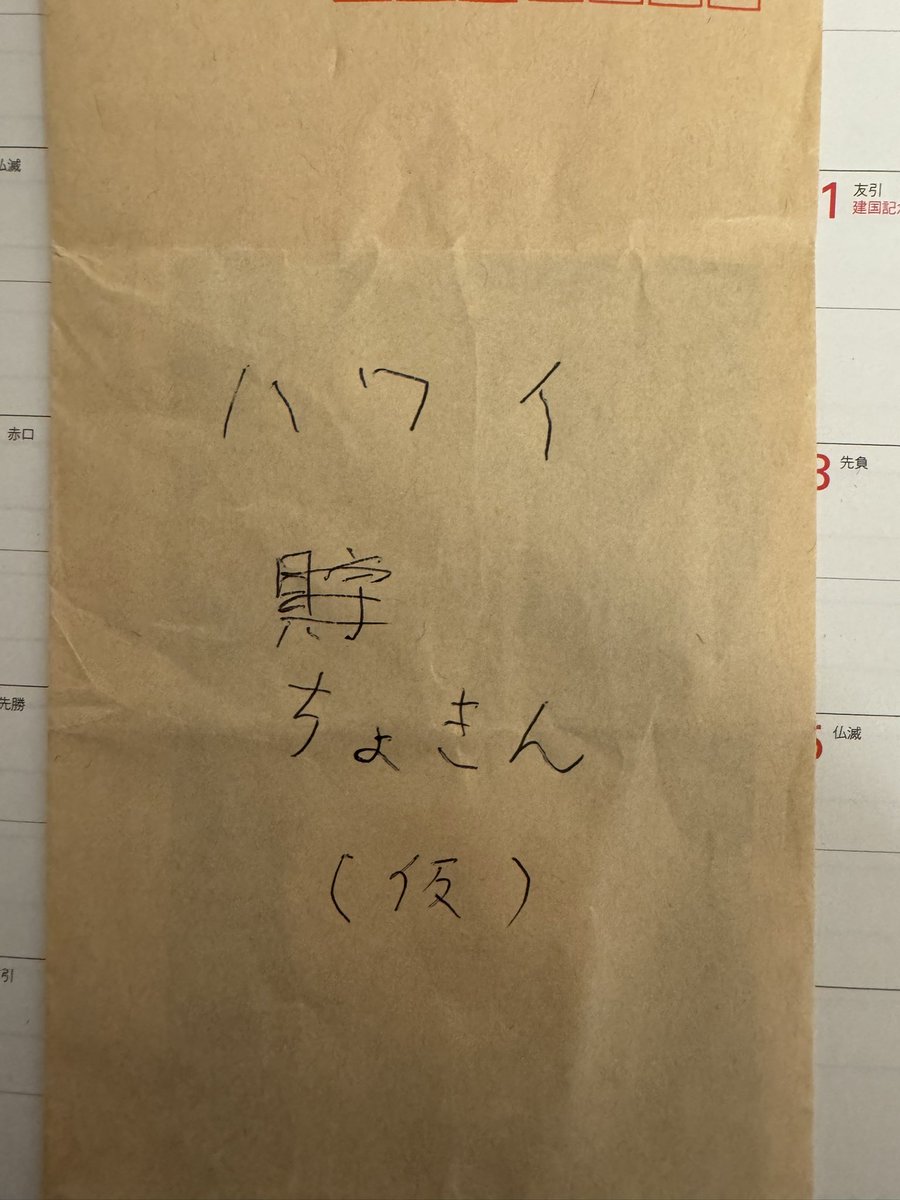 仏滅
1 友引
建国記
ハワイ
赤口
3 先負
貯
ちょきん
先勝
5 仏滅
(仮)
引